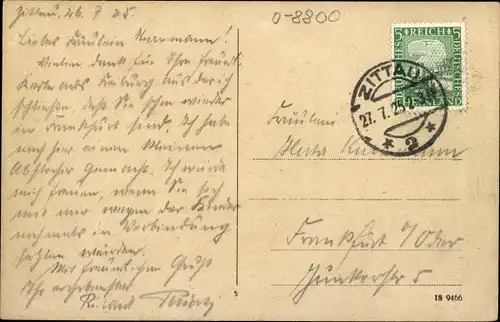 Zittau, 26. 7. 25.
Liebes Fräulein Herrmann!
Vielen Dank für Ihre freundl.
Karte aus Freiburg aus der ich
schließen, daß Sie schon wieder
in Frankfurt sind. Ich habe
noch hier einen kleinen
Abstecher gemacht. Ich würde
mich freuen, wenn Sie sich
mit mir wegen der Bilder
nochmals in Verbindung
setzen würden.
Mit freundlichen Gruß
Ihr ergebenster
Richard
0-8800
5 DEUTSCHES REICH 5
ZITTAU
27. 7. 25
* 2 *
Fräulein
Herta
Frankfurt a/Oder
Junkerstr 5
5
18 9466